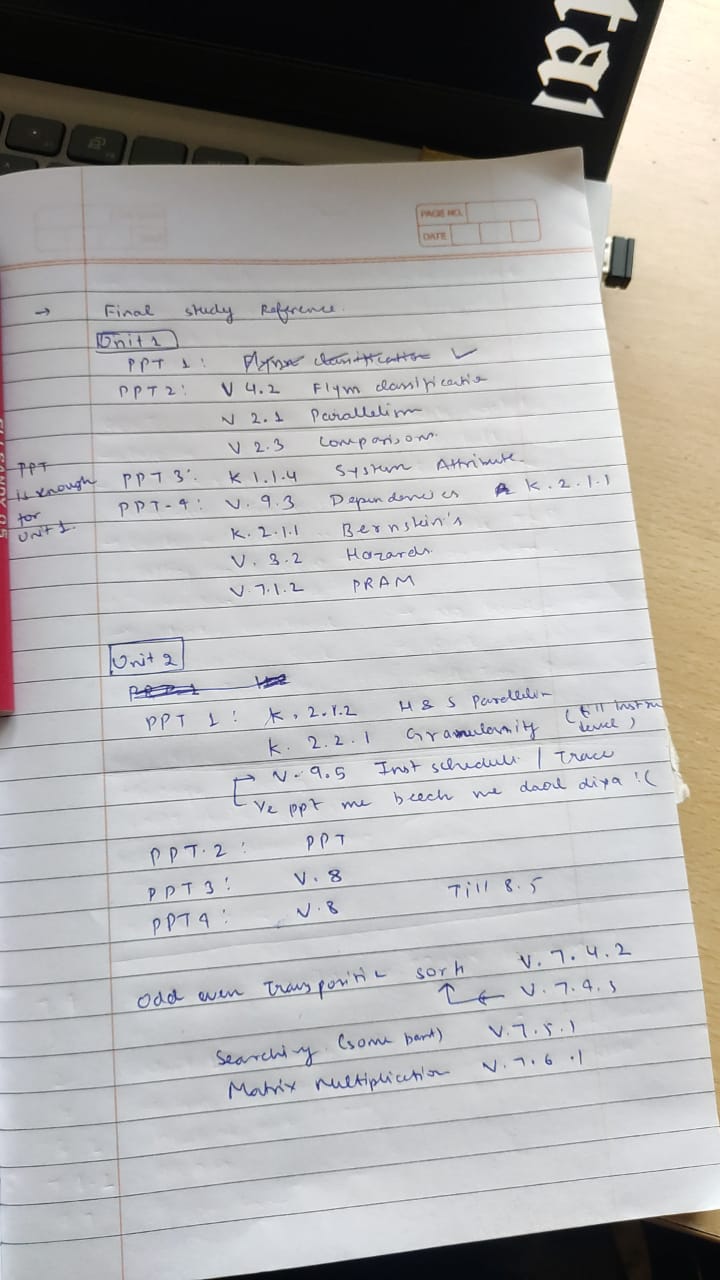 PAGE NO.
DATE
→ Final study Reference.
Unit 1
PPT 1: Flynn classification ✓
PPT2: V 4.2 Flym classificatio
V 2.1 Parallelism
V 2.3 Comparisons
PPT is enough for Unit 1.
PPT 3: K 1.1.4 System Attribute
PPT-4: V. 9.3 Dependencies K. 2.1.1
K. 2.1.1 Bernstein's
V. 3.2 Hazards
V. 7.1.2 PRAM
Unit 2
PPT 1: K. 2.1.2 H & S Parallelism
K. 2.2.1 Granularity (till instru level)
V. 9.5 Inst schedule / Trace
Ye ppt me beech me daal diya :(
PPT.2: PPT
PPT 3: V. 8
PPT4: V.8 Till 8.5
Odd even transpositio sort V. 7.4.2
↑ ← V. 7.4.3
Searching (some part) V. 7.5.1
Matrix multiplication V. 7.6.1